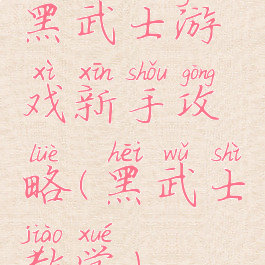 黑武士游
xì xīn shǒu gōng
戏新手攻
lüè hēi wǔ shì
略(黑武士
jiào xué
教学)